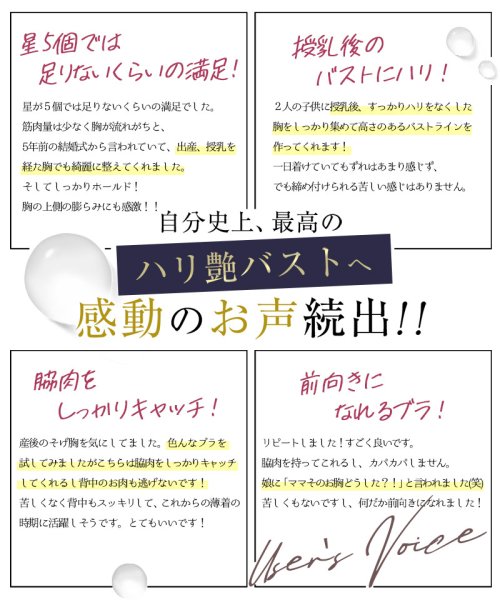 星5個では
足りないくらいの満足!
星が５個では足りないくらいの満足でした。
筋肉量は少なく胸が流れがちと、
5年前の結婚式から言われていて、出産、授乳を
経た胸でも綺麗に整えてくれました。
そしてしっかりホールド！
胸の上側の膨らみにも感激！！
授乳後の
バストにハリ!
２人の子供に授乳後、すっかりハリをなくした
胸をしっかり集めて高さのあるバストラインを
作ってくれます！
一日着けていてもずれはあまり感じず、
でも締め付けられる苦しい感じはありません。
自分史上、最高の
ハリ艶バストへ
感動のお声続出!!
脇肉を
しっかりキャッチ!
産後のそげ胸を気にしてました。色んなブラを
試してみましたがこちらは脇肉をしっかりキャッチ
してくれるし背中のお肉も逃げないです！
苦しくなく背中もスッキリして、これからの薄着の
時期に活躍しそうです。とてもいいです！
前向きに
なれるブラ!
リピートしました！すごく良いです。
脇肉を持ってこれるし、カパカパしません。
娘に「ママそのお胸どうした？！」と言われました(笑)
苦しくもないですし、何だか前向きになれました！
User's Voice